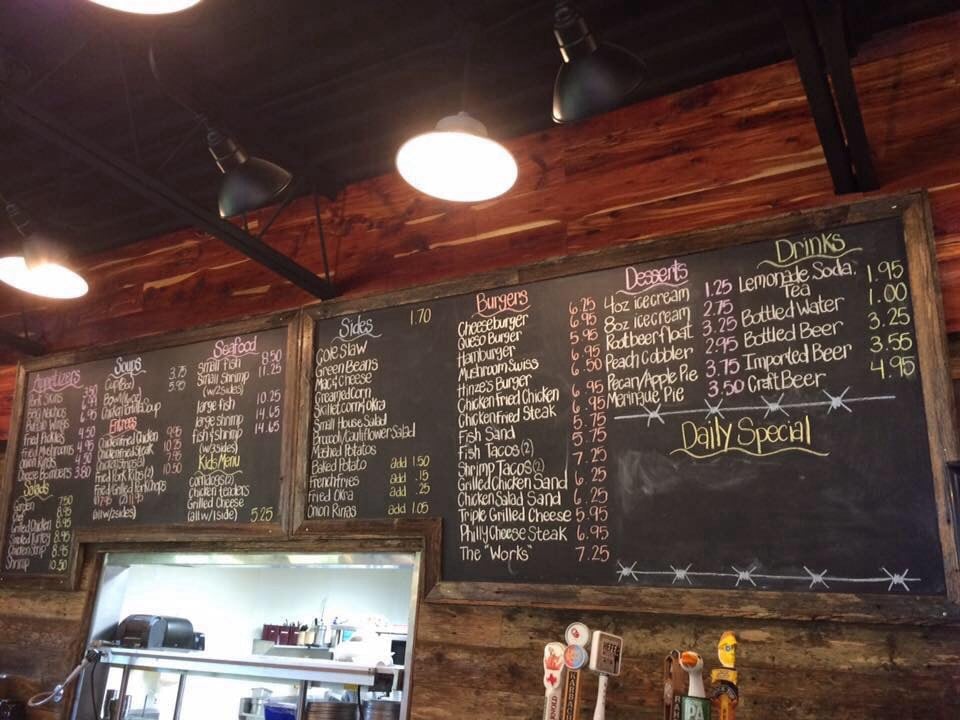 Appetizers
Fried Pickles 4.50
Fried Mushrooms 4.95
Onion Rings 4.50
Cheese Bombers 3.80
Salads
Garden 7.50
Grilled Chicken 8.95
Smoked Turkey 8.95
Chicken Strip 8.95
Shrimp 10.50
Soups
Cup (8oz) 3.75
5.95
Chicken Tortilla Soup
Entrees
Chicken Fried Chicken 9.95
Chicken Fried Steak 10.25
(all w/2 sides)
Seafood
small fish 8.50
Small Shrimp 11.25
(w/2 sides)
large fish 10.25
large shrimp 14.65
fish & shrimp 14.65
(w/3 sides)
Kids Menu
Corndogs (2)
Chicken Tenders
Grilled Cheese
(all w/1 side) 5.25
Sides 1.70
Cole Slaw
Green Beans
Mac & Cheese
Creamed Corn
Skillet Corn & Okra
Small House Salad
Broccoli/Cauliflower Salad
Mashed Potatos
Baked Potato add 1.50
French Fries add .15
Fried Okra add .25
Onion Rings add 1.05
Burgers
Cheeseburger 6.25
Queso Burger 6.95
Hamburger 5.95
Mushroom Swiss 6.50
Hinze's Burger
Chicken Fried Chicken 6.95
Chicken Fried Steak 6.95
Fish Sand 5.75
Fish Tacos (2) 5.75
Shrimp Tacos (2) 7.25
Grilled Chicken Sand 6.25
Chicken Salad Sand 6.25
Triple Grilled Cheese 5.95
Philly Cheese Steak 6.95
The "Works" 7.25
Desserts
4oz ice cream 1.25
8oz ice cream 2.75
Rootbeer float 3.25
Peach Cobbler 2.95
Pecan/Apple Pie 3.75
Meringue Pie 3.50
Drinks
Lemonade, Soda, 1.95
Tea
Bottled Water 1.00
Bottled Beer 3.25
Imported Beer 3.55
Craft Beer 4.95
Daily Special